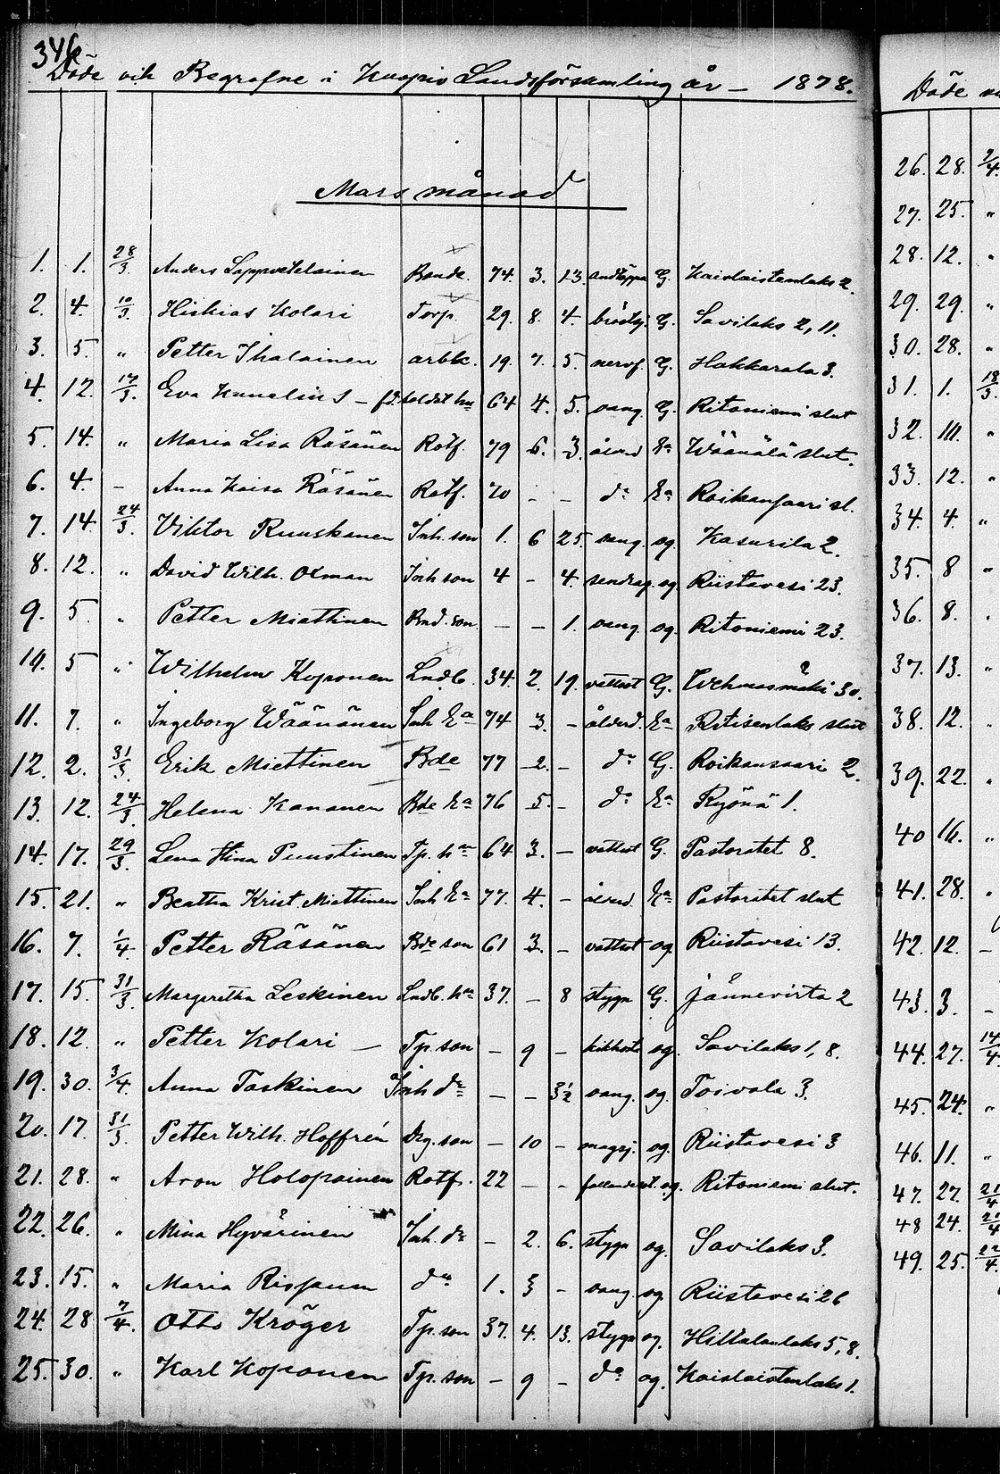 346
Döde och Begrafne i Kuopio Landsförsamling år — 1878.
Mars månad
1. 1. 28/3. Anders Lappvetelainen Bonde. 74. 3. 13. andtäppa G. Kaislaistenlaks 2.
2. 4. 10/3. Hiskias Kolari Torp. 29. 8. 4. bröstsj. G. Savilaks 2, 11.
3. 5. " Petter Ihalainen arbk. 19. 7. 5. nervf. G. Hakkarala 3.
4. 12. 17/3. Eva Kunelius – fd. soldat hu 64 4. 5. oang. G. Ritoniemi slut
5. 14. " Maria Lisa Räsänen Rotf. 79 6. 3. ålerd Ea Wäänälä slut.
6. 4. – Anna Kaisa Räsänen Rotf. 70 – – do Ea Roikansaari sl.
7. 14. 24/3. Viktor Ruuskanen Inh. son 1. 6 25. oang. og. Kasurila 2.
8. 12. " David Wilh. Oxman Inh son 4 – 4. sendrag. og. Riistavesi 23.
9. 5. " Petter Miettinen Bnd. son – – 1. oang. og. Ritoniemi 23.
10. 5 " Wilhelm Koponen Lndb. 34. 2. 19. vattust G. Wehmasmäki 30.
11. 7. " Ingeborg Wäänänen Inh Ea 74 3. – ålderd. Ea Ritisenlaks slut
12. 2. 31/3 Erik Miettinen Bde 77 2. – do G. Roikansaari 2.
13. 12. 24/3. Helena Kananen Bde Ea 76 5. – do Ea Ryönä 1.
14. 17. 29/3. Lena Stina Puustinen Tp. hu 64 3. – vattust G. Pastoratet 8.
15. 21. " Beatha Krist. Miettinen Inh Ea 77. 4. – ålerd. Ea Pastoratet slut
16. 7. 1/4 Petter Räsänen Bde son 61 3. – vattust og Riistavesi 13.
17. 15. 31/3. Margeretha Leskinen Lndb. hu 37. – 8 stygn G. Jännevirta 2
18. 12. " Petter Kolari – Tp. son – 9 – kikhosta og. Savilaks 1, 8.
19. 30. 3/4. Anna Taskinen Inh dr – – 3½ oang. og. Toivala 3.
20. 17. 31/3 Petter Wilh. Hoffrén Drg. son – 10 – magsj. og. Riistavesi 3
21. 28. " Aron Holopainen Rotf. 22 – – fallandest. og. Ritoniemi slut.
22. 26. " Mina Hyvärinen Inh. dr – 2. 6. stygn og. Savilaks 3.
23. 15. " Maria do 1. 3 – oang. og Riistavesi 26
24. 28 7/4. Otto Kröger Tp. son 37. 4. 13. stygn og. 5, 8.
25. 30. " Karl Koponen Tp. son – 9 – do og. Kaislaistenlaks 1.
Döde
26. 28. 7/4.
27. 25. "
28. 12. "
29. 29. "
30. 28. "
31. 1. 13/3.
32. 10. "
33. 12. "
34. 4. "
35. 8 "
36. 8. "
37. 13. "
38. 12. "
39. 22. "
40 16. "
41. 28. "
42. 12. –
43. 3. –
44. 27. 14/4
45. 24. "
46. 11. "
47. 27. 21/4
48 24. 21/4
49. 25. 22/4.